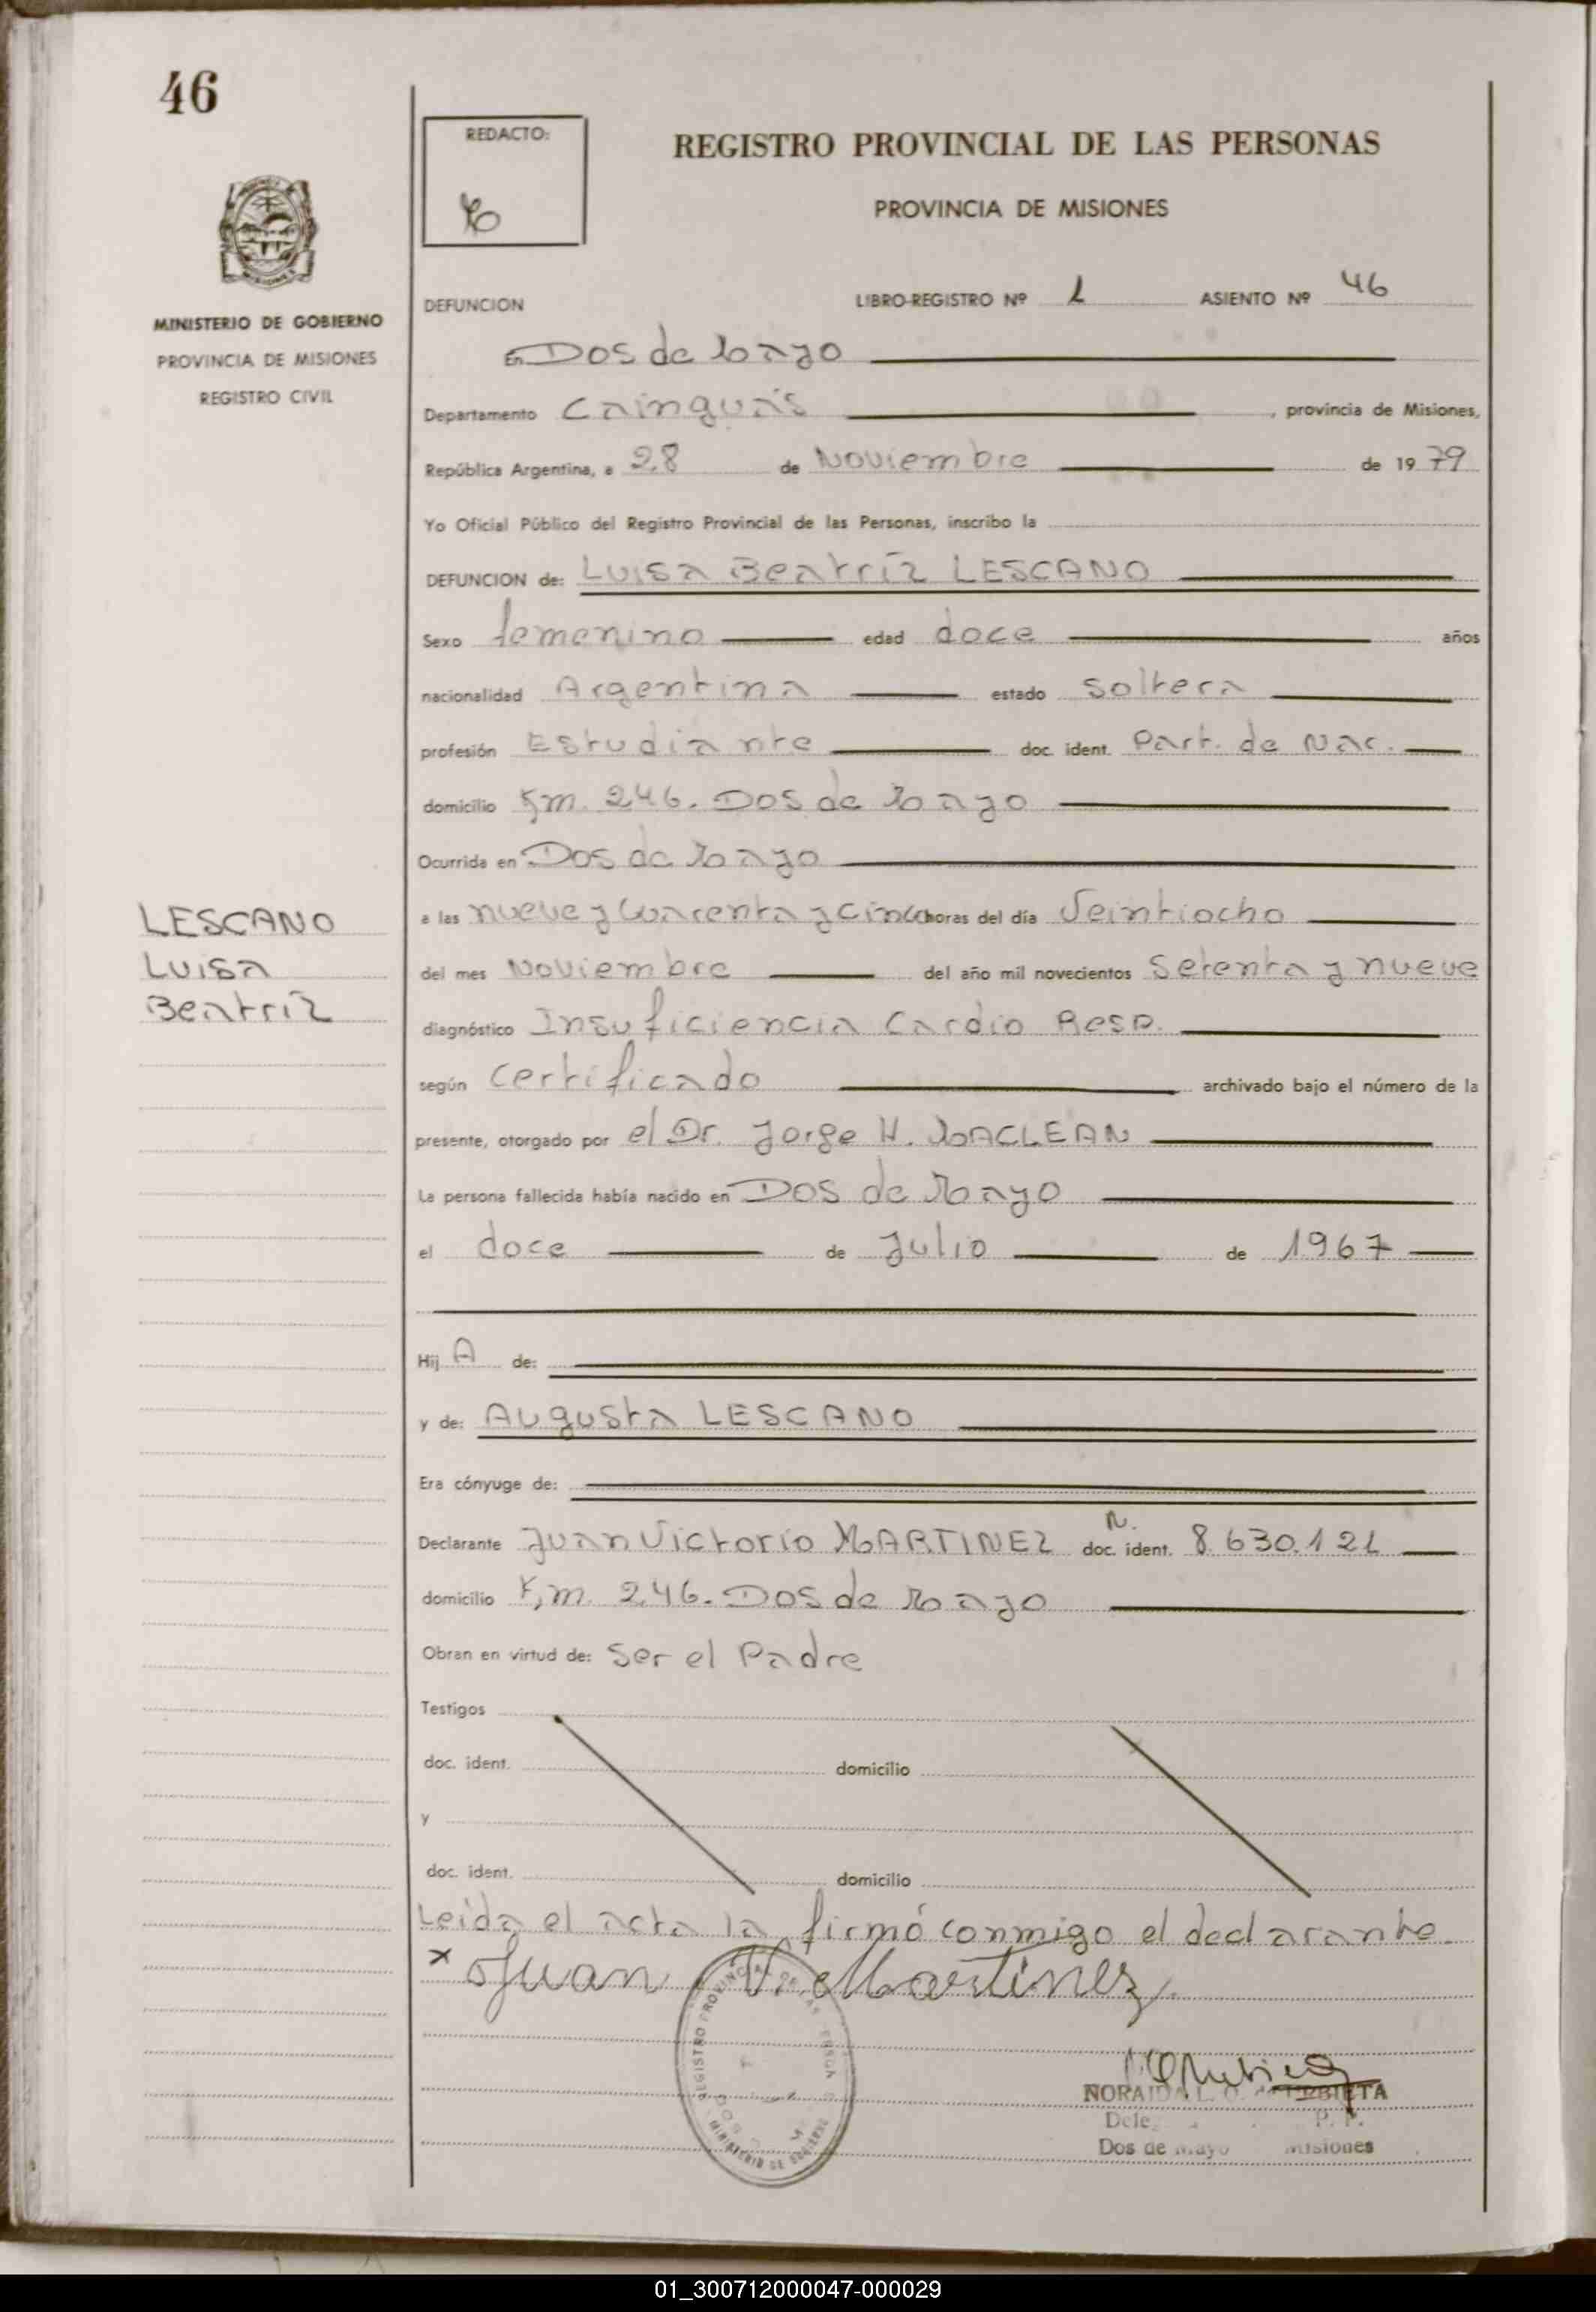 46
REDACTO:
REGISTRO PROVINCIAL DE LAS PERSONAS
PROVINCIA DE MISIONES
MINISTERIO DE GOBIERNO
PROVINCIA DE MISIONES
REGISTRO CIVIL
DEFUNCION LIBRO-REGISTRO Nº 1 ASIENTO Nº 46
En Dos de Mayo
Departamento Cainguás, provincia de Misiones,
República Argentina, a 28 de Noviembre de 1979
Yo Oficial Público del Registro Provincial de las Personas, inscribo la
DEFUNCION de: Luisa Beatríz LESCANO
Sexo femenino edad doce años
nacionalidad Argentina estado soltera
profesión Estudiante doc. ident. Part. de Nac.
domicilio Km. 246. Dos de Mayo
Ocurrida en Dos de Mayo
LESCANO
Luisa
Beatríz
a las nueve y cuarenta y cinco horas del día Veintiocho
del mes Noviembre del año mil novecientos Setenta y nueve
diagnóstico Insuficiencia Cardio Resp.
según certificado archivado bajo el número de la
presente, otorgado por el Dr. Jorge H. MACLEAN
La persona fallecida había nacido en Dos de Mayo
el doce de Julio de 1967
Hij A de:
y de: Augusta LESCANO
Era cónyuge de:
Declarante Juan Victorio MARTINEZ N. doc. ident. 8.630.121
domicilio Km. 246. Dos de Mayo
Obran en virtud de: Ser el Padre
Testigos
doc. ident. domicilio
y
doc. ident. domicilio
Leída el acta la firmó conmigo el declarante.
x Juan V. Martinez
REGISTRO PROVINCIAL DE LAS PERSONAS
MINISTERIO DE GOBIERNO
NORAIDA L. O. de URBIETA
Dele. P. P.
Dos de Mayo Misiones
01_300712000047-000029